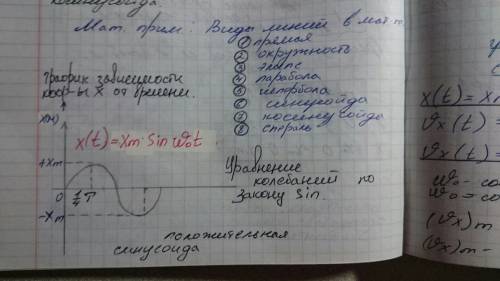 Мат. прим: Виды линий в мат-
① прямая
② окружность
③ элипс
④ парабола
⑤ гипербола
⑥ синусойда
⑦ косинусойда
⑧ спираль
График зависимости
коор-ы X от времени.
X(м)
x(t)=Xm·Sin ω₀t
+Xm
0
1/4 T
-Xm
Уравнение
колебаний по
закону Sin.
положительная
синусоида
x(t) = Xm
ϑx(t) =
ϑx(t) =
ω₀-
ω₀=
(ϑx)m -
(ϑx)m -